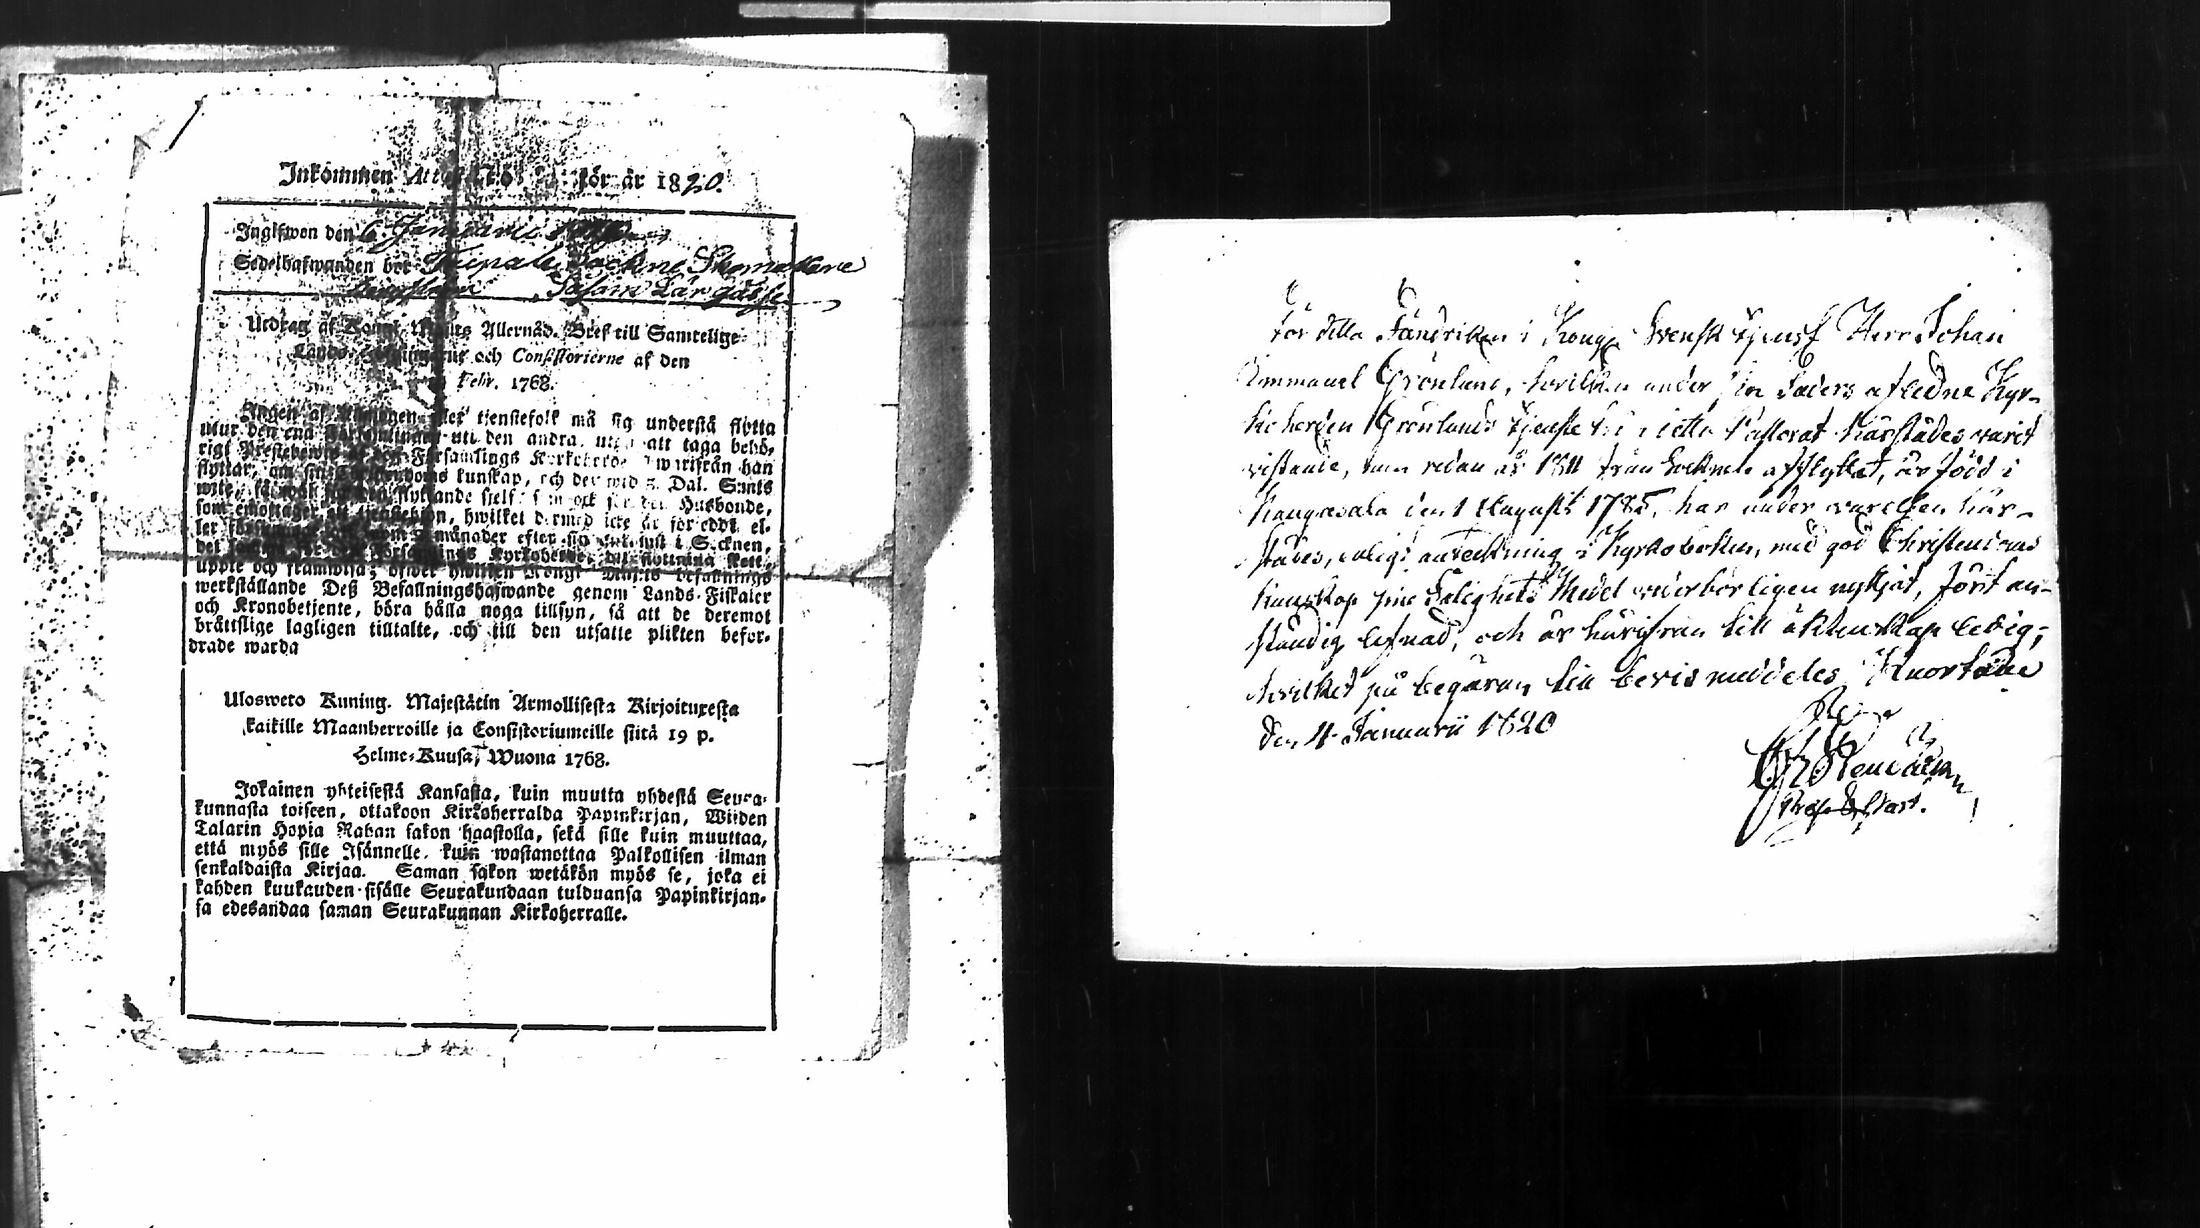 Inkommen Attest N:o för år 1820.
Ingifwen den 6 Januarii
Sedelhafwanden bör Sockne Skomakare
Utdrag af Kongl. Maj:ts Allernåd. Bref till Samtelige
Lands-Höfdingarne och Consistorierne af den
Febr. 1768.
Ingen af Allmogen eller tienstefolk må sig understå flytta
utur den ena Församlingen uti den andra, utan att taga behö-
rigt Prestebewis af den Församlings Kyrkoherde hwarifrån han
flyttar, om sin Christendoms kunskap, och det wid 5. Dal. S:mts
wite, så wäl för den flyttande sielf som ock för den Husbonde,
som emottager ett tienstehion, hwilket dermed icke är försedt, el-
ler månader efter sin ankomst i Socknen,
det Församlings Kyrkoherde,
uppte och framwisa; öfwer hwilken Kongl Maj:ts befallnings
werkställande Deß Befallningshafwande genom Lands-Fiskaler
och Kronobetjente, böra hålla noga tillsyn, så att de deremot
bråttslige lagligen tilltalte, och till den utsatte plikten befor-
drade warda
Ulosweto Kuning. Majestätin Armollisesta Kirjoituxesta
kaikille Maanherroille ja Consistoriumeille siitä 19 p.
Helme-Kuusa, Wuona 1768.
Jokainen yhteisestä Kansasta, kuin muutta yhdestä Seura-
kunnasta toiseen, ottakoon Kirkoherralda Papinkirjan, Wiiden
Talarin Hopia Rahan sakon haastolla, sekä sille kuin muuttaa,
että myös sille Isännelle, kuin wastanottaa Palkollisen ilman
senkaldaista Kirjaa. Saman sakon wetäkön myös se, joka ei
kahden kuukauden sisälle Seurakundaan tulduansa Papinkirjan-
sa edesandaa saman Seurakunnan Kirkoherralle.
För detta Fändriken i Kongl. Svensk tjenst Herr Johan
Emmanuel Grönlund, hvilken under sin Faders afledne Kyr-
koherden Grönlunds tjenste tid i detta Pastorat härstädes varit
vistande, men redan år 1811 från Socknen afflyttat, är född i
Kangasala den 1 Augusti 1785, har under varelsen här-
städes, enligt anteckning i Kyrkoboken, med god Christendoms
kunskap sine Salighets Medel vederbörligen nyttjat, fört an-
ständig lefnad, och är härifrån till äktenskap ledig;
hvilket på begäran till bevis meddeles. Kuortane
den 4 Januarii 1820